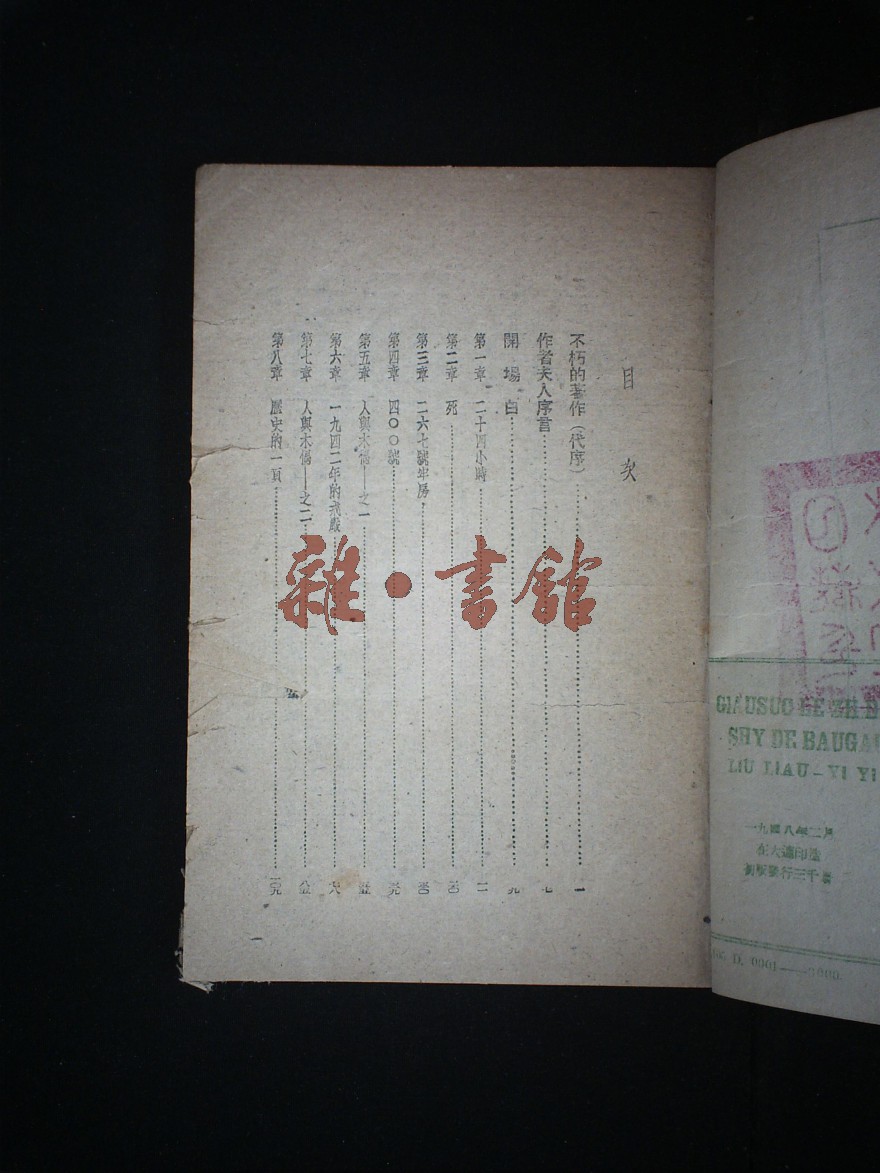 目次
不朽的著作（代序）……一
作者夫人序言……七
開場白……九
第一章 二十四小時……一一
第二章 死……
第三章 二六七號牢房……
第四章 四〇〇號……
第五章 人與木偶——之一……
第六章 一九四二年的戒嚴……
第七章 人與木偶——之二……
第八章 歷史的一頁……
一
雜·書館
GIAUSUO
SHY DE BAUGAU
LIU LIAU-YI YI
一九四八年二月
在大連印造
初版發行三千冊
D. 0001——3000.